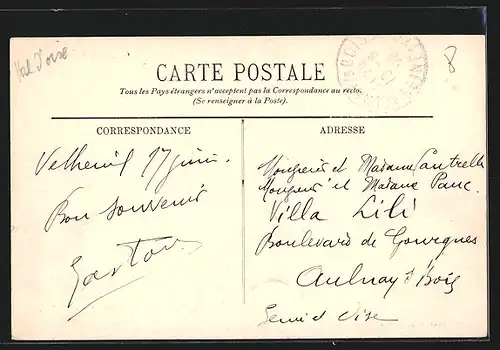 Val d'oise
8
CARTE POSTALE
Tous les Pays étrangers n'acceptent pas la Correspondance au recto.
(Se renseigner à la Poste).
CORRESPONDANCE
Vetheuil 17 juin.
Bon souvenir
Gaston
ADRESSE
Monsieur et Madame
Monsieur et Madame
Villa Lili
Boulevard de Gourgues
Aulnay s/ Bois
Seine et Oise